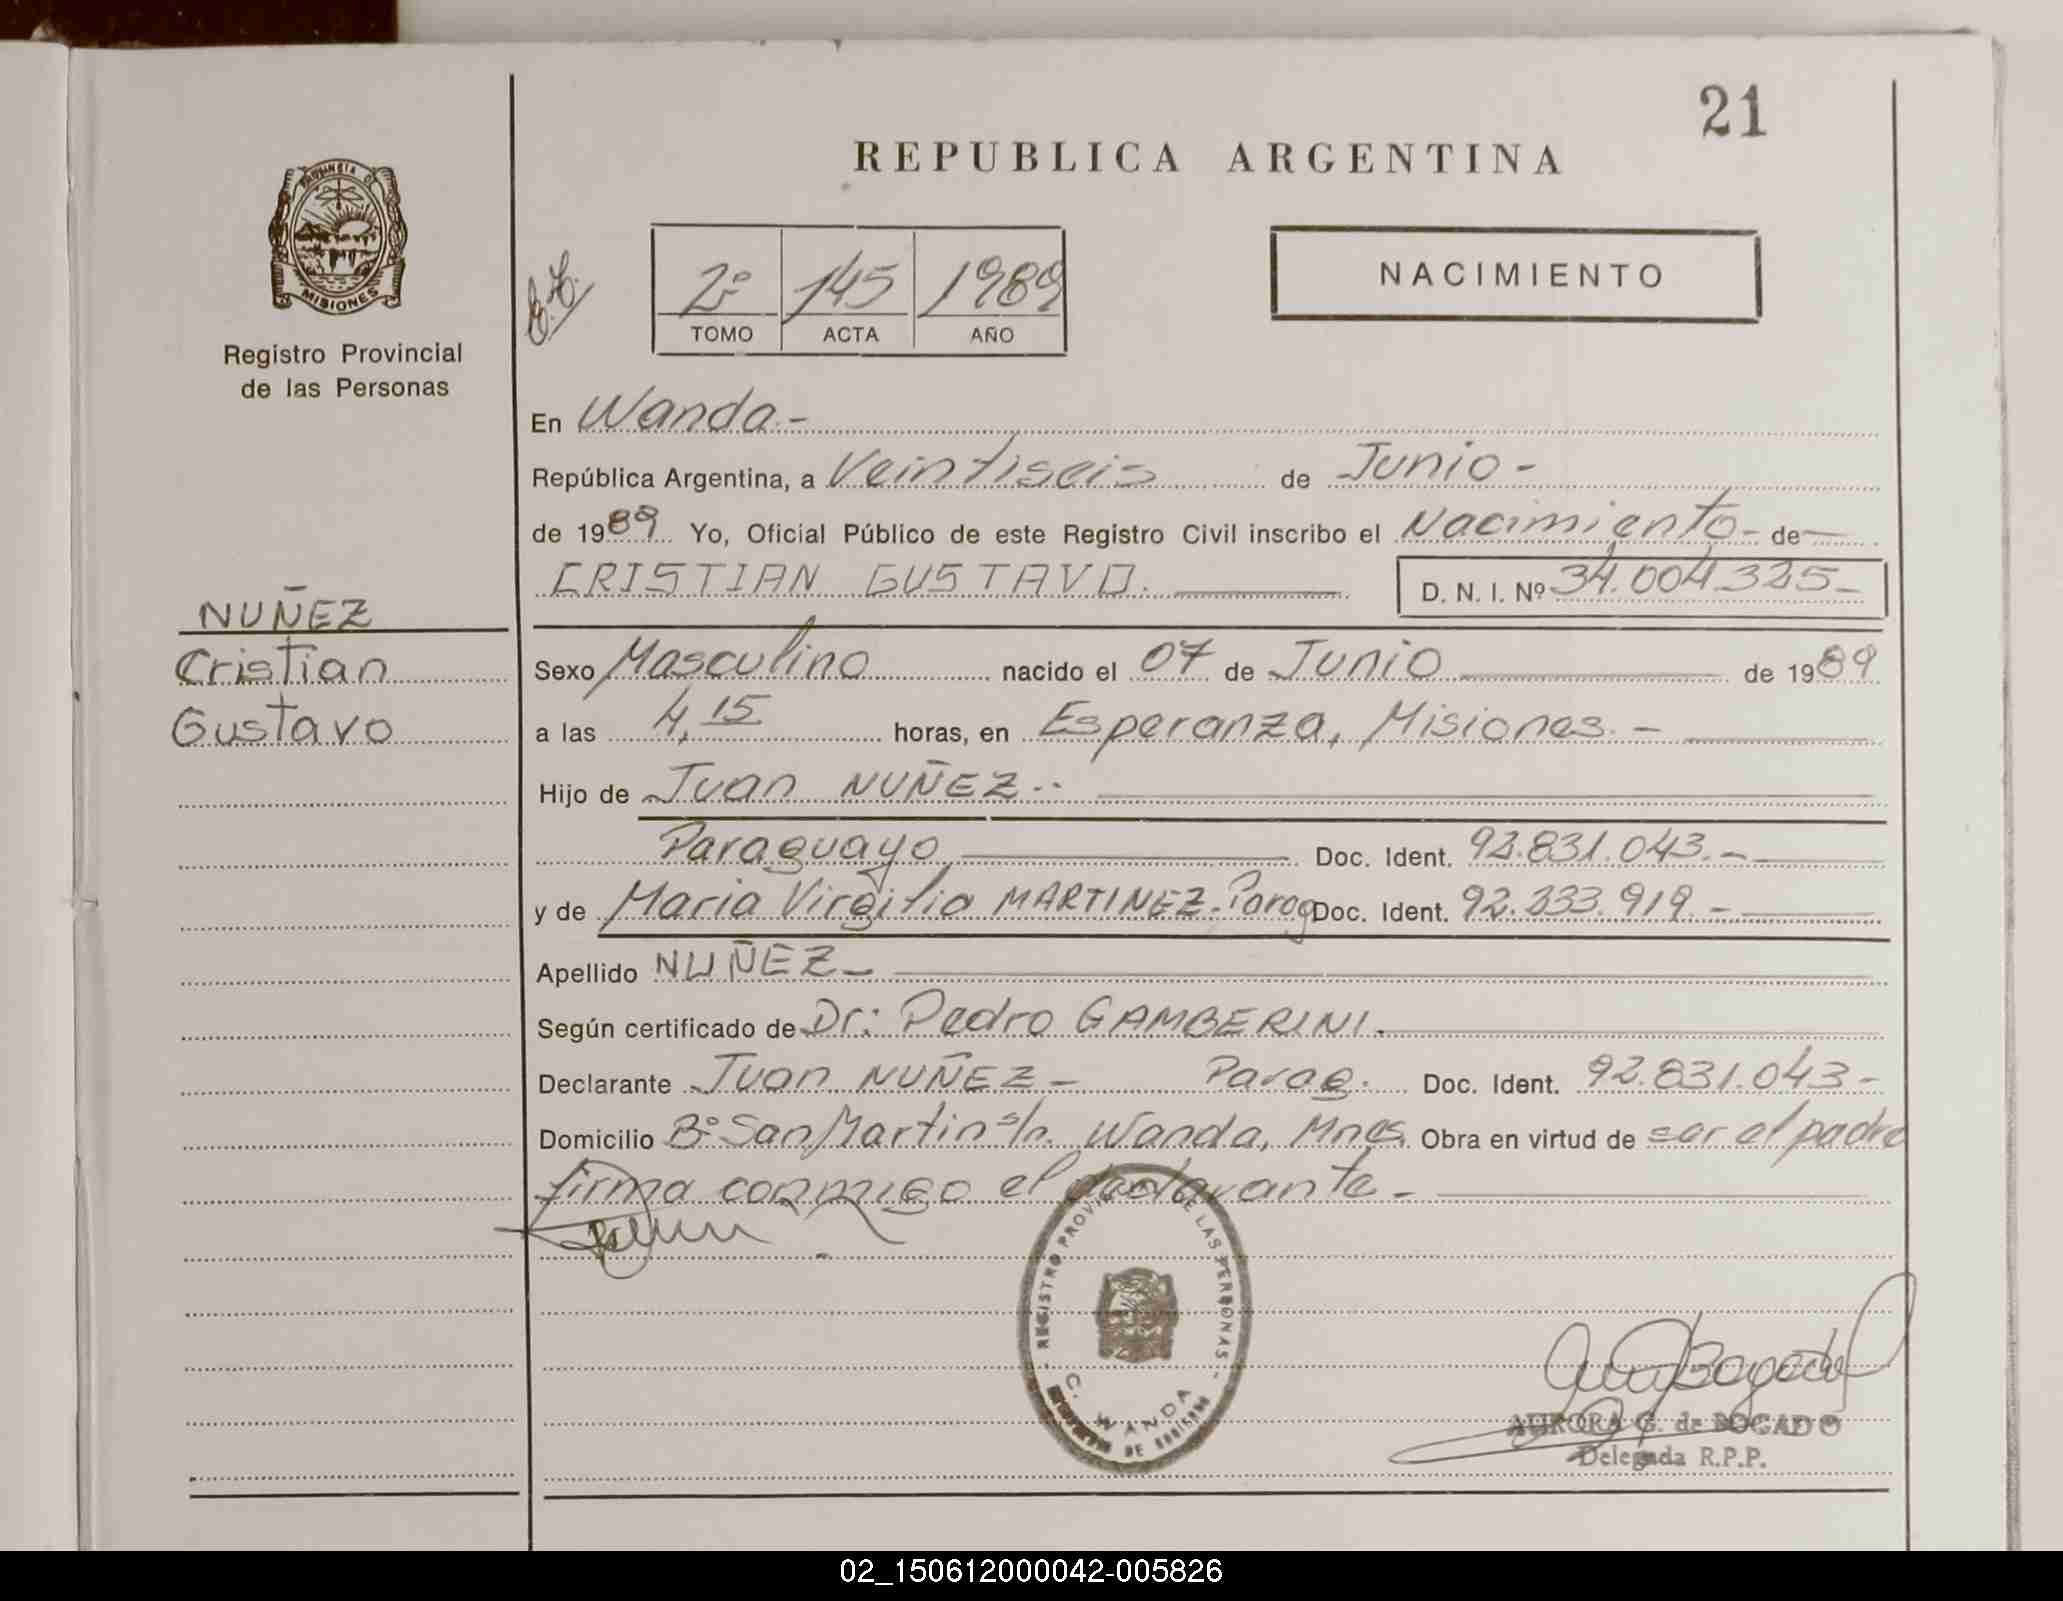 21
REPUBLICA ARGENTINA
PROVINCIA DE
MISIONES
Registro Provincial
de las Personas
2º 145 1989
TOMO ACTA AÑO
NACIMIENTO
En Wanda.-
República Argentina, a Veintiseis de Junio-
de 1989 Yo, Oficial Público de este Registro Civil inscribo el Nacimiento- de
CRISTIAN GUSTAVO. D. N. I. Nº 34.004325-
NUÑEZ
Cristian
Gustavo
Sexo Masculino nacido el 07 de Junio de 1989
a las 4,15 horas, en Esperanza, Misiones.-
Hijo de Juan NUÑEZ.-
Paraguayo Doc. Ident. 92.831.043.-
y de Maria Virgilia MARTINEZ-Parag Doc. Ident. 92.333.919.-
Apellido NUÑEZ-
Según certificado de Dr: Pedro GAMBERINI.
Declarante Juan NUÑEZ- Parag. Doc. Ident. 92.831.043-
Domicilio Bº San Martin s/n. Wanda, Mnes. Obra en virtud de ser el padre
firma conmigo el declarante.-
REGISTRO PROVINCIAL DE LAS PERSONAS
WANDA
AURORA G. de BOGADO
Delegada R.P.P.
02_150612000042-005826